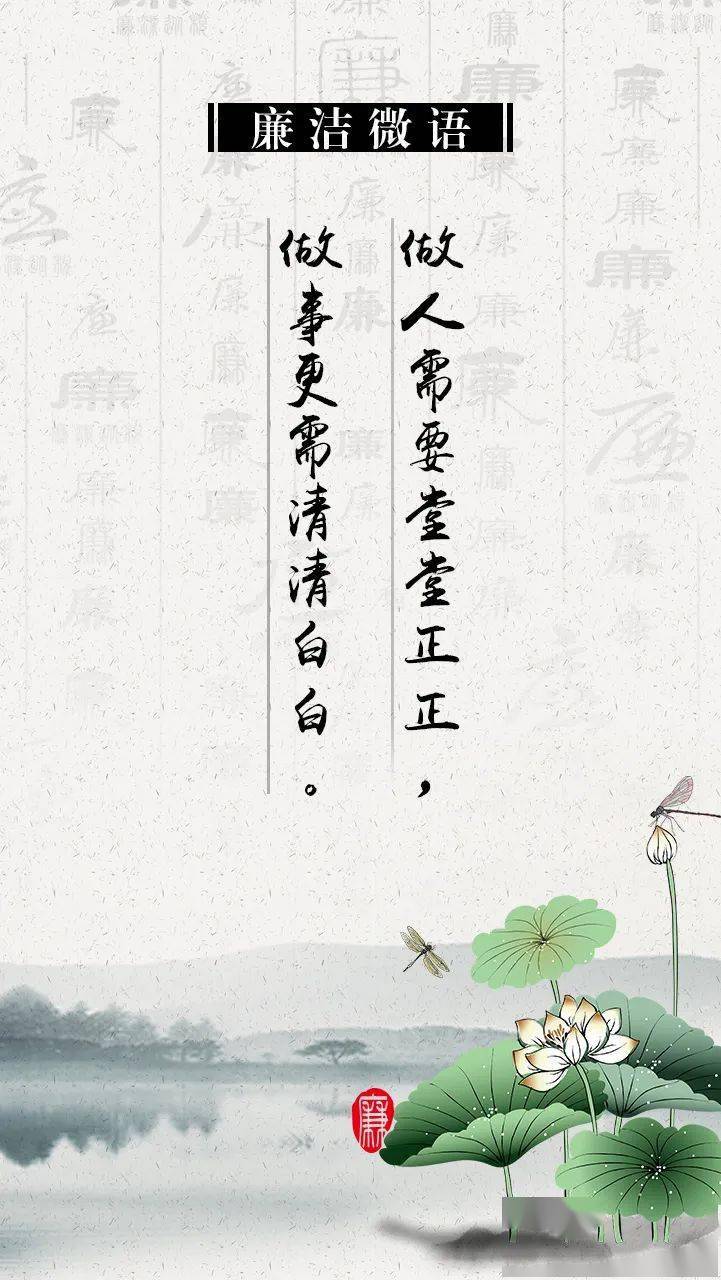 廉洁微语
做人需要堂堂正正，
做事更需清清白白。
廉